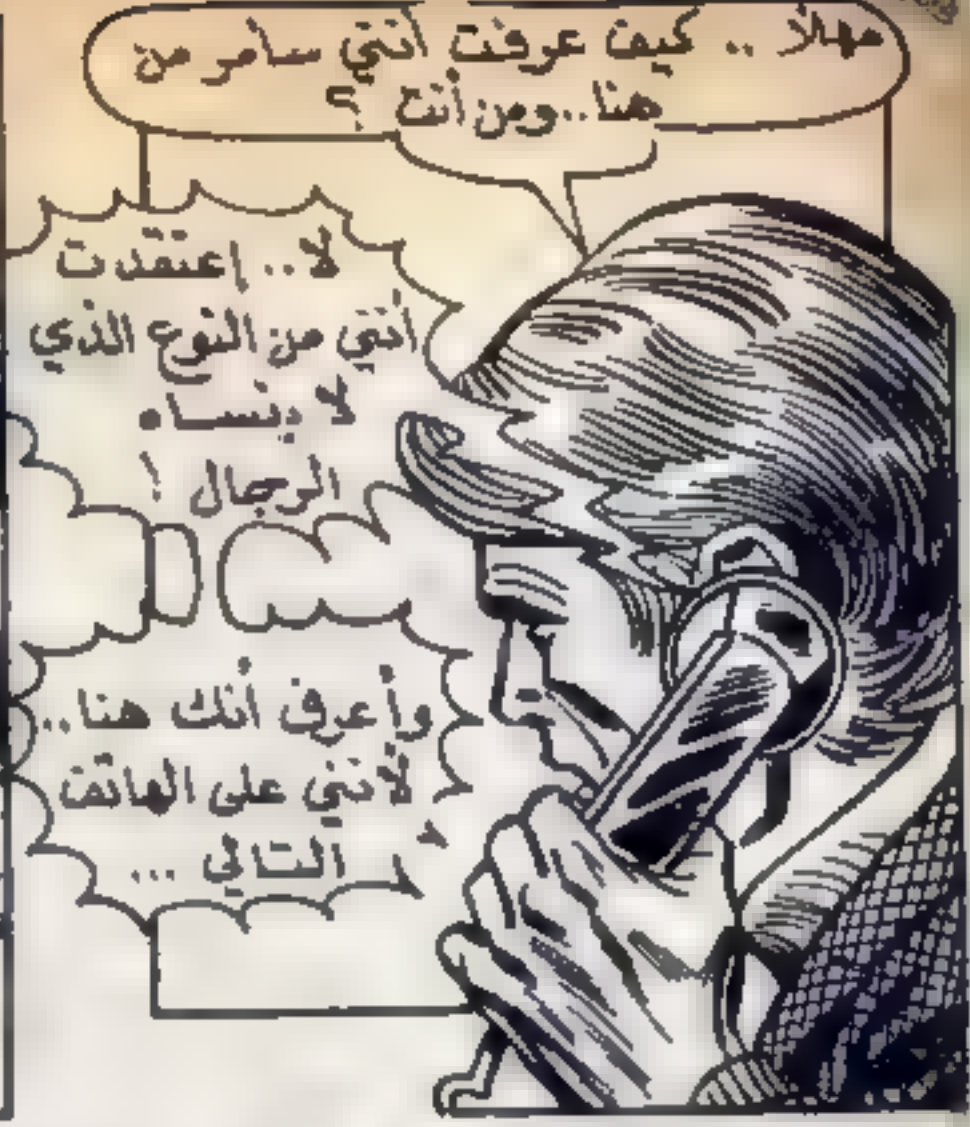 مهلاً .. كيف عرفت أنني سأمر من
هنا.. ومن أنت ؟
لا.. إعتقدت
أنني من النوع الذي
لا ينساه
الرجال !
وأعرف أنك هنا..
لأنني على الهاتف
التالي ...